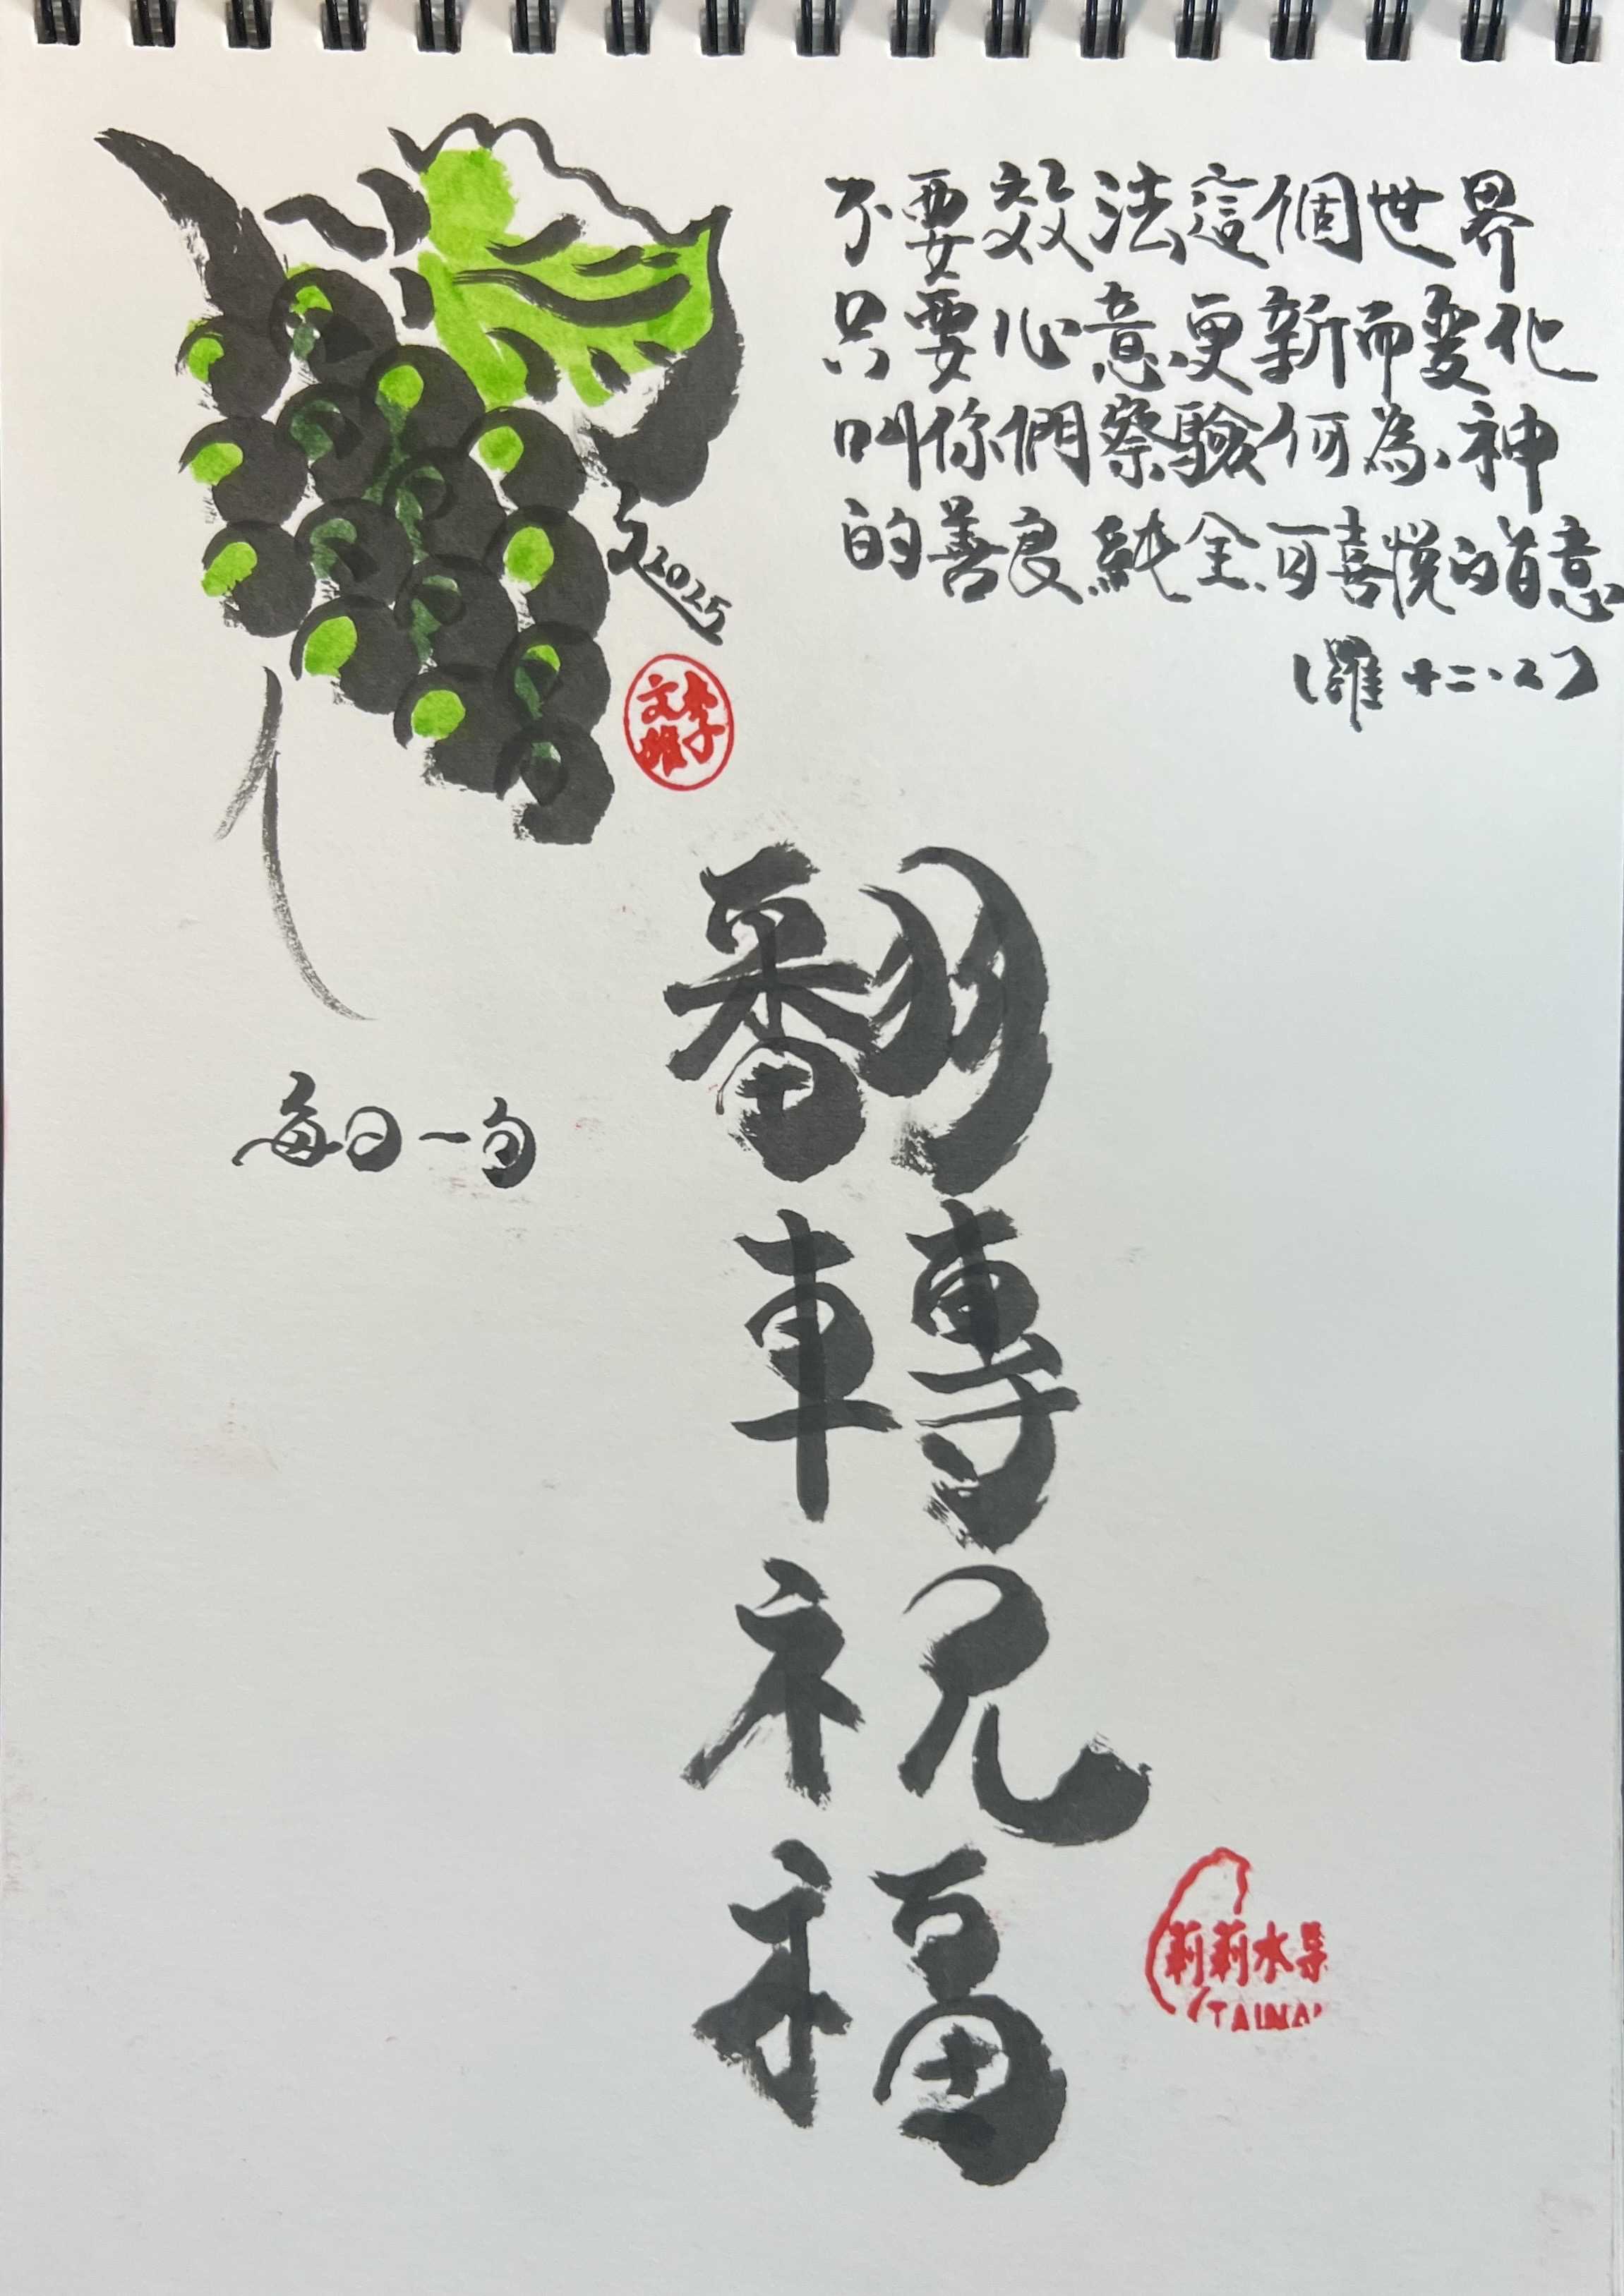 不要效法這個世界
只要心意更新而變化
叫你們察驗何為神
的善良純全可喜悅的旨意
(羅十二.2)
文2025
李文雄
每日一句
翻轉祝福
莉莉水果
TAINAN